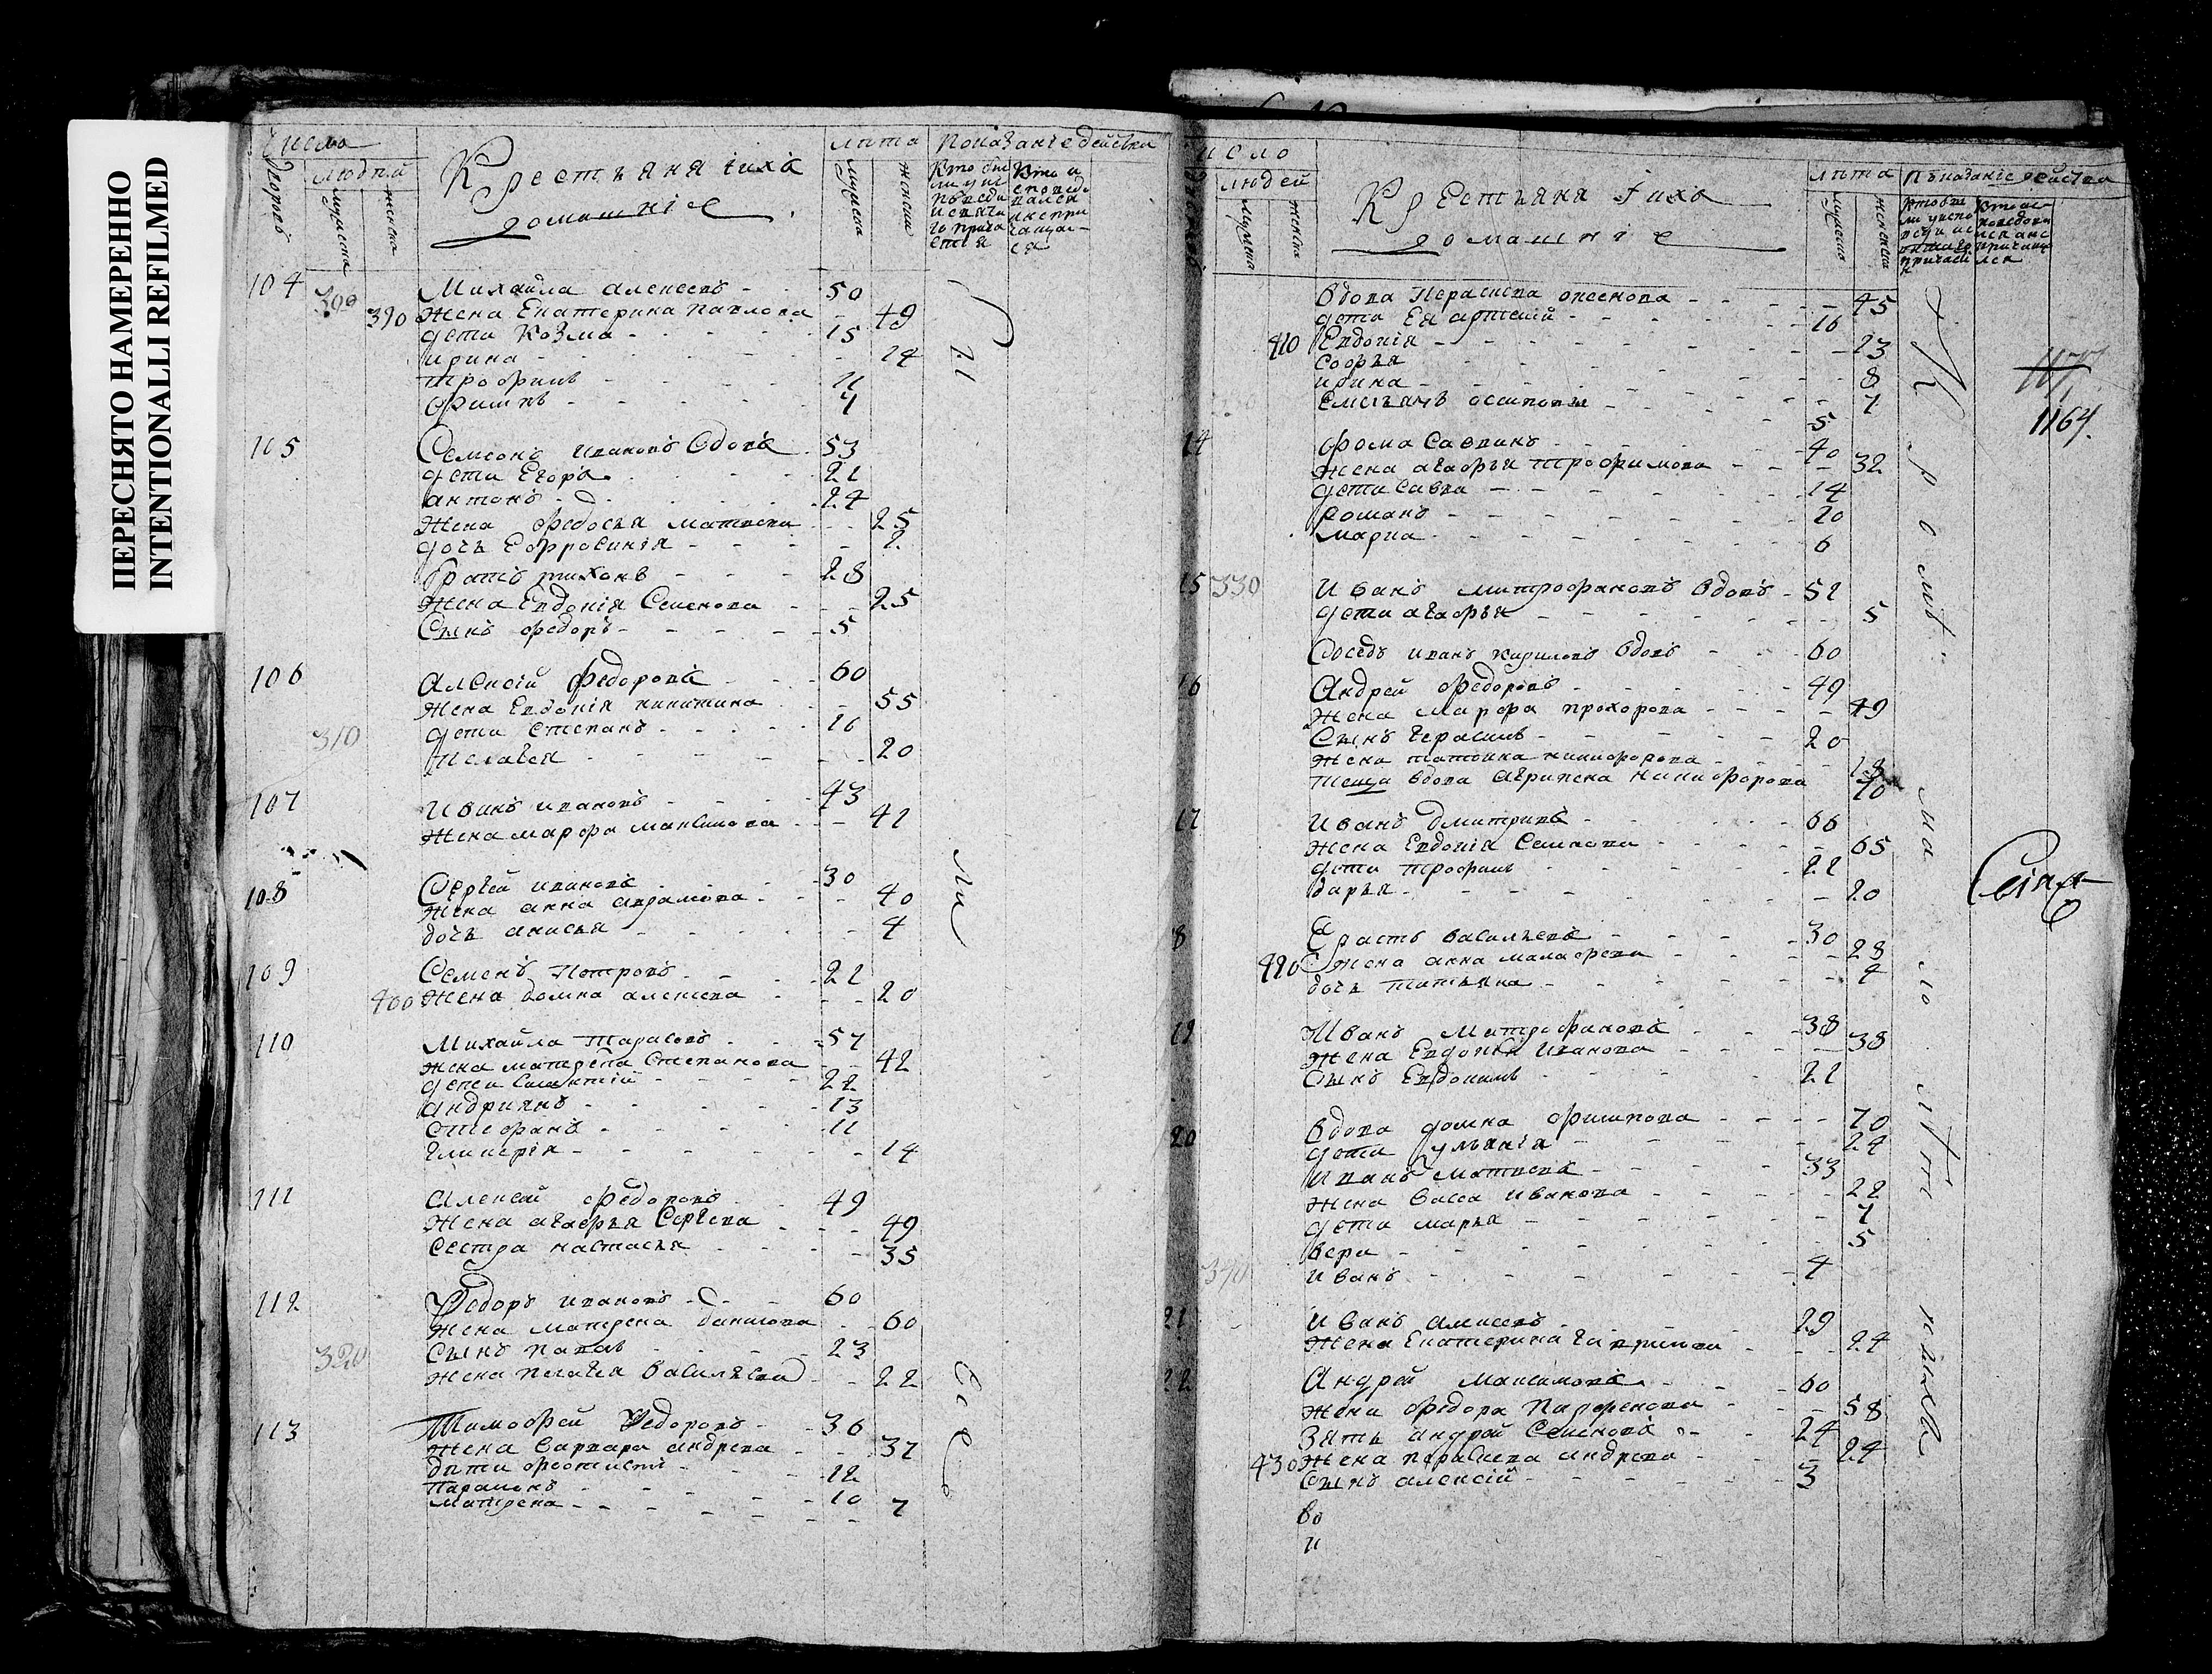 ПЕРЕСНЯТО НАМЕРЕННО
INTENTIONALLI REFILMED
Число
людей
Крестьяна ихъ
домашніе
лѣта
Показаніе действа
104 Михайла Алексеевъ 50
390 жена Екатерина Павлова 49
дети Козма 15
ирина 14
трофимъ 11
105 Семионъ Ивановъ вдовъ 53
дети Егоръ 21
антонъ 24
жена федосья матвеева 25
дочь Ефросинія 2
братъ тихонъ 28
жена Евдокія Семенова 25
Сынъ федоръ 5
106 Алексій федоровъ 60
жена Евдокія никитина 55
310 дети Степанъ 16
Пелагея 20
107 Иванъ ивановъ 43
жена марфа максимова 41
108 Сергей ивановъ 30
жена анна аврамова 40
дочь анисья 4
109 Семенъ Петровъ 21
400 жена домна алексеева 20
110 Михайла Тарасовъ 57
жена матрена Степанова 42
дети 22
андриянъ 13
Стефанъ 11
гликерія 14
111 Алексей федоровъ 49
жена агафья Сергеева 49
Сестра настасья 35
112 Федоръ ивановъ 60
жена матрена данилова 60
320 Сынъ павелъ 23
жена пелагея васильева 22
113 Тимофей Федоровъ 36
жена варвара андреева 37
дети феоктистъ 12
Парамонъ 10
матрена 7
Число
людей
Крестьяна ихъ
домашніе
лѣта
Показаніе действа
вдова Параскева аксенова 45
дети Ея артемій 16
410 Евдокія 23
Софья 8
ирина 7
Емельянъ осиповъ 5
1164.
14 фома Саввинъ 40
жена агафья трофимова 32
дети Савва 14
Романъ 20
мария 6
15 330 Иванъ митрофановъ вдовъ 51
дети агафья 5
Соседъ иванъ кириловъ вдовъ 60
16 Андрей федоровъ 49
жена марфа прохорова 49
Сынъ герасимъ 20
жена татьяна никифорова 18
теща вдова Агрипена никифорова 70
17 Иванъ дмитриевъ 66
жена Евдокія Семенова 65
дети трофимъ 21
дарья 20
18 Ерастъ васильевъ 30
420 жена анна малафеева 28
дочь татьяна 4
19 Иванъ Митрофановъ 38
жена Евдокия Иванова 38
Сынъ Евдокимъ 21
20 вдова домна филипова 70
дети ульянія 24
Иванъ матвеевъ 33
жена васса иванова 22
дети марья 7
вера 5
340 иванъ 4
21 Иванъ алексеевъ 29
жена Екатерина гаврилова 24
22 Андрей максимовъ 60
жена федора Парфенова 58
Зять андрей Семеновъ 24
430 жена параскева андреева 24
Сынъ алексій 3
во
и